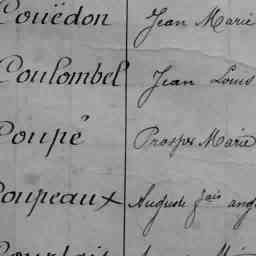 Couëdon Jean Marie
Coulombel Jean Louis
Coupé Prosper Marie
Coupeaux Auguste fois ang